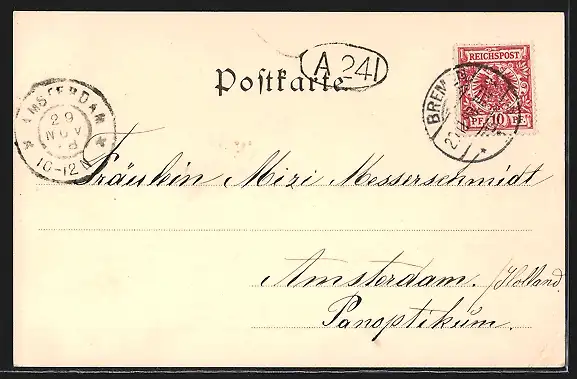 A 241
Postkarte.
REICHSPOST
PF 10 PF.
BREMEN
AMSTERDAM
29
NOV
98
10-12 N
Fräulein Mizi Messerschmidt
Amsterdam. (Holland.
Panoptikum.